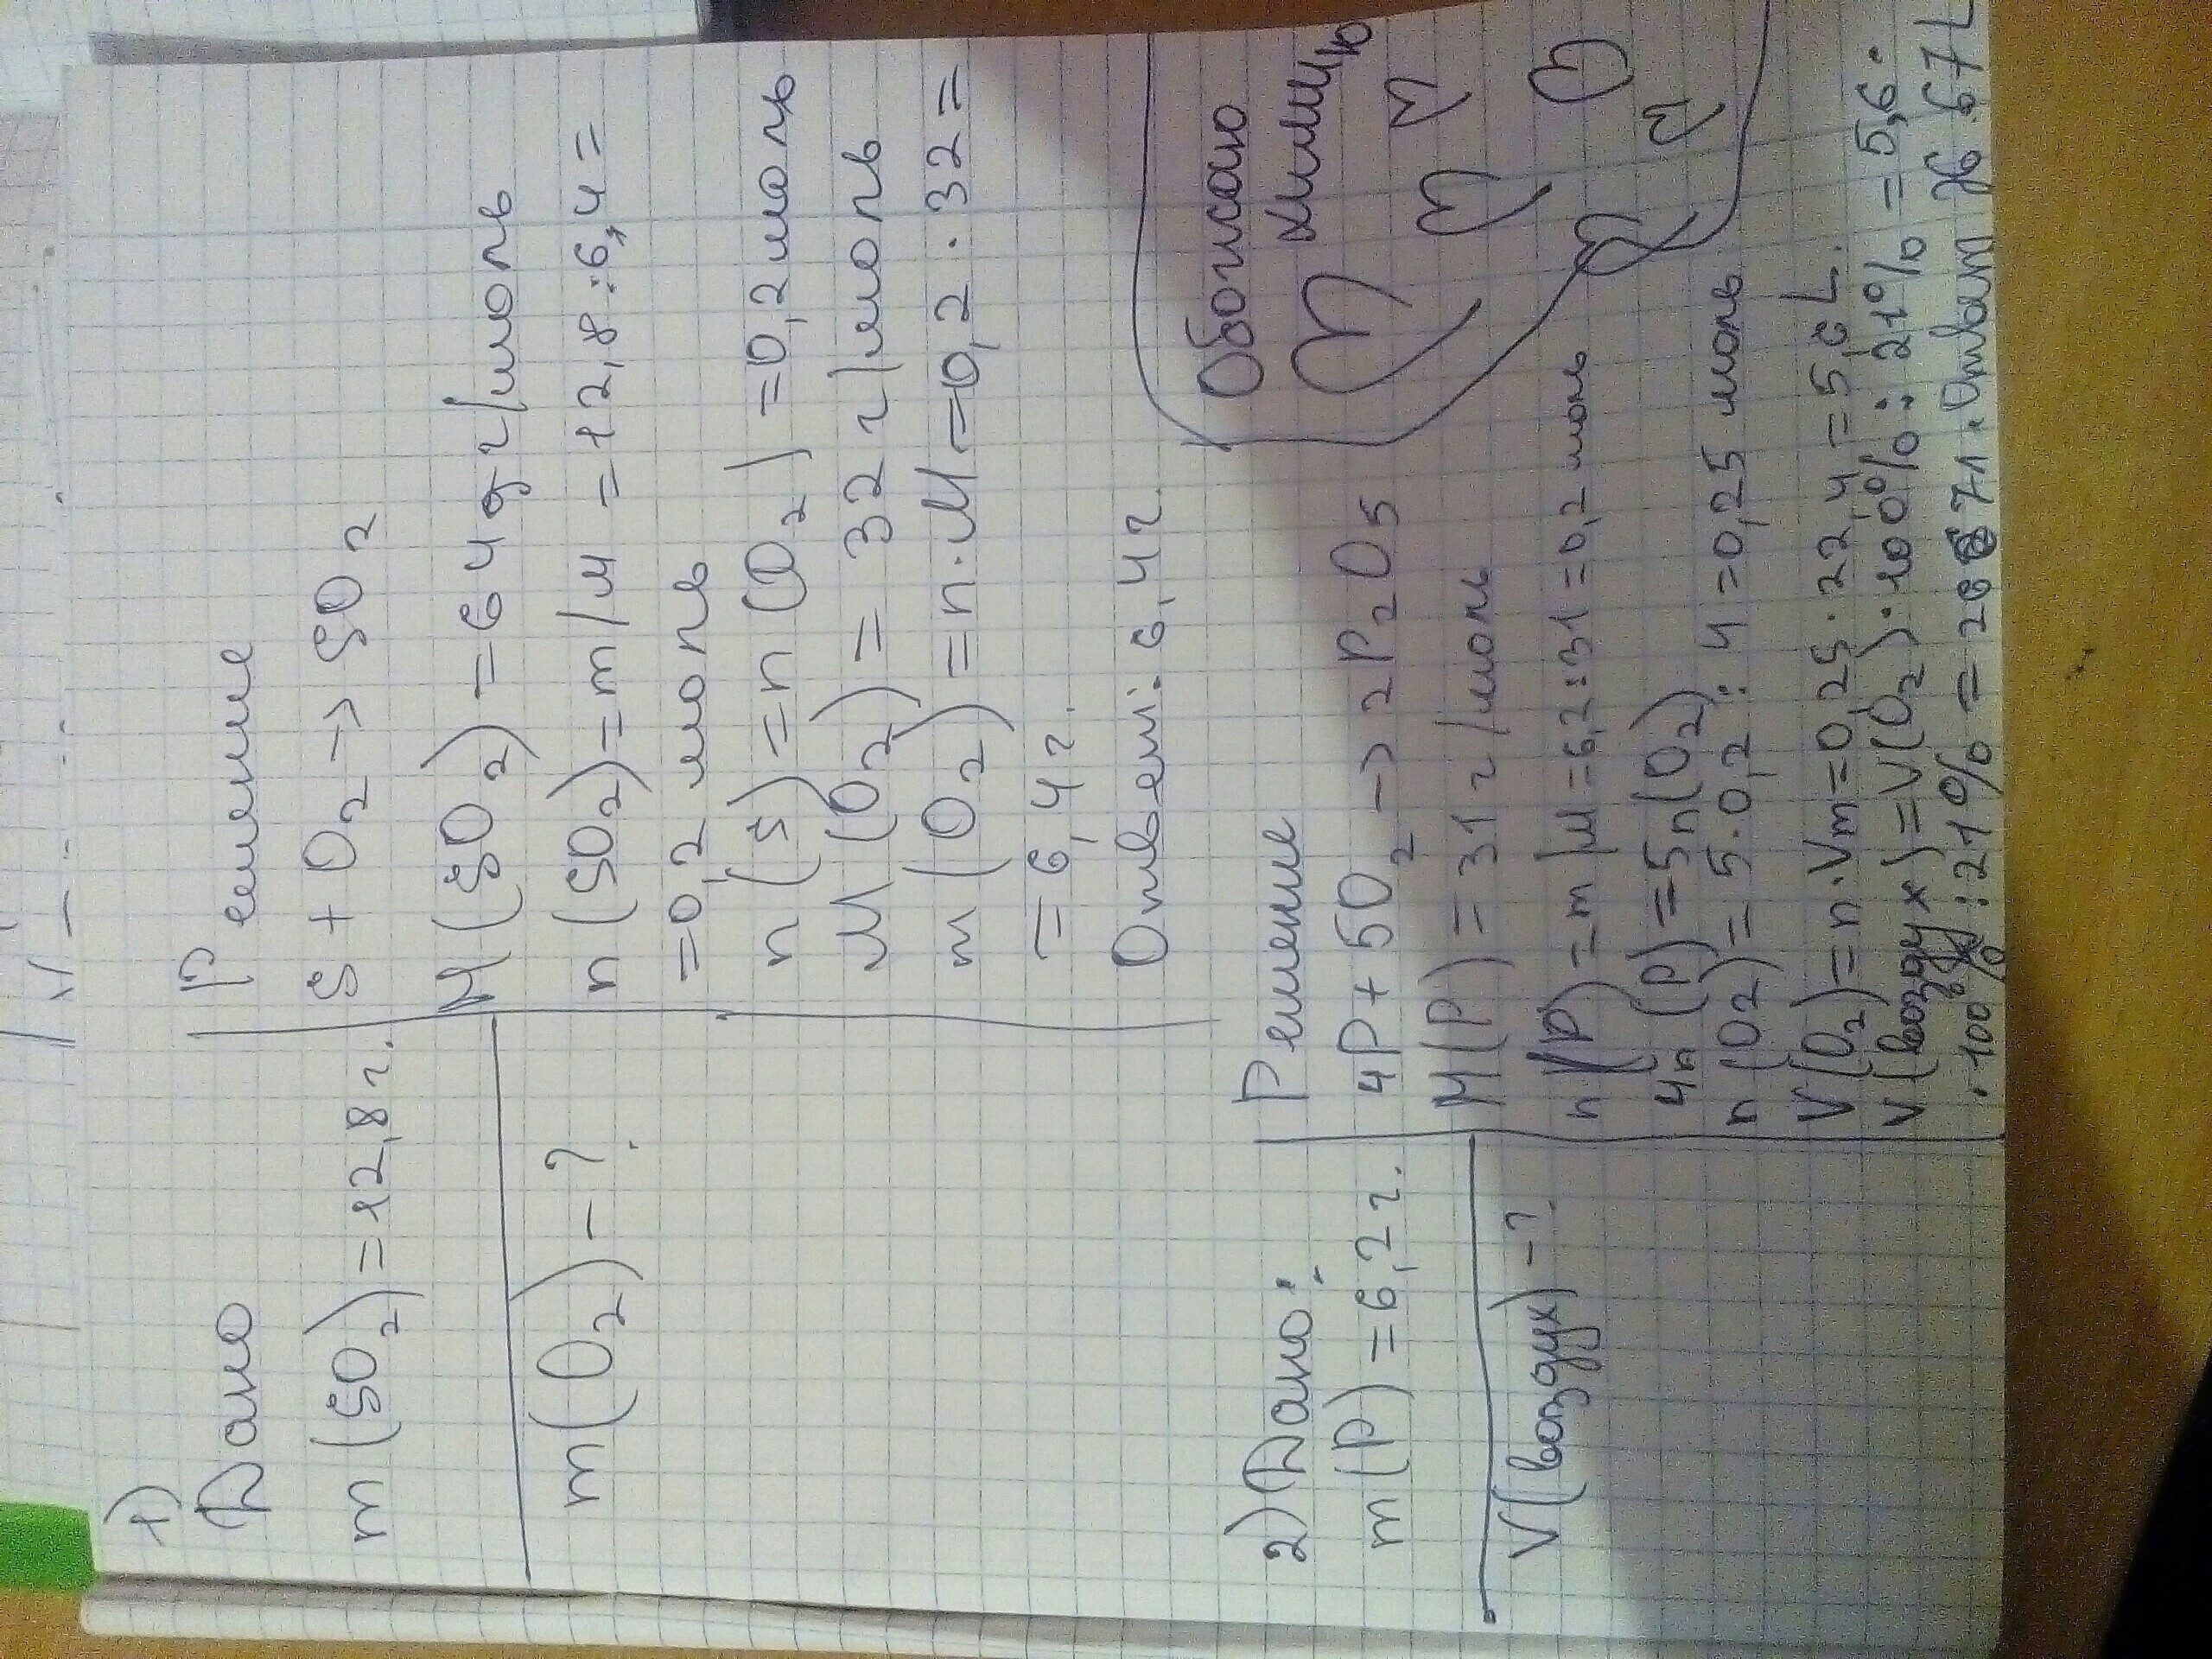 1)
Дано
m(SO2)=12,8г.
m(O2)-?
Решение
S + O2 -> SO2
M(SO2)=64 г/моль
n(SO2)=m/M=12,8:6,4=
=0,2 моль
n(S)=n(O2)=0,2моль
M(O2)=32г/моль
m(O2)=n·M=0,2·32=
=6,4г.
Ответ: 6,4г.
2)Дано:
m(P)=6,2г.
V(воздух)-?
Решение
4P+5O2->2P2O5
M(P)=31г/моль
n(P)=m/M=6,2:31=0,2моль
4n(P)=5n(O2)
n(O2)=5·0,2:4=0,25 моль
V(O2)=n·Vm=0,25·22,4=5,6L.
V(воздух)=V(O2)·100%:21%=5,6·
·100%:21%= Ответ 26.67L
Обожаю
химию